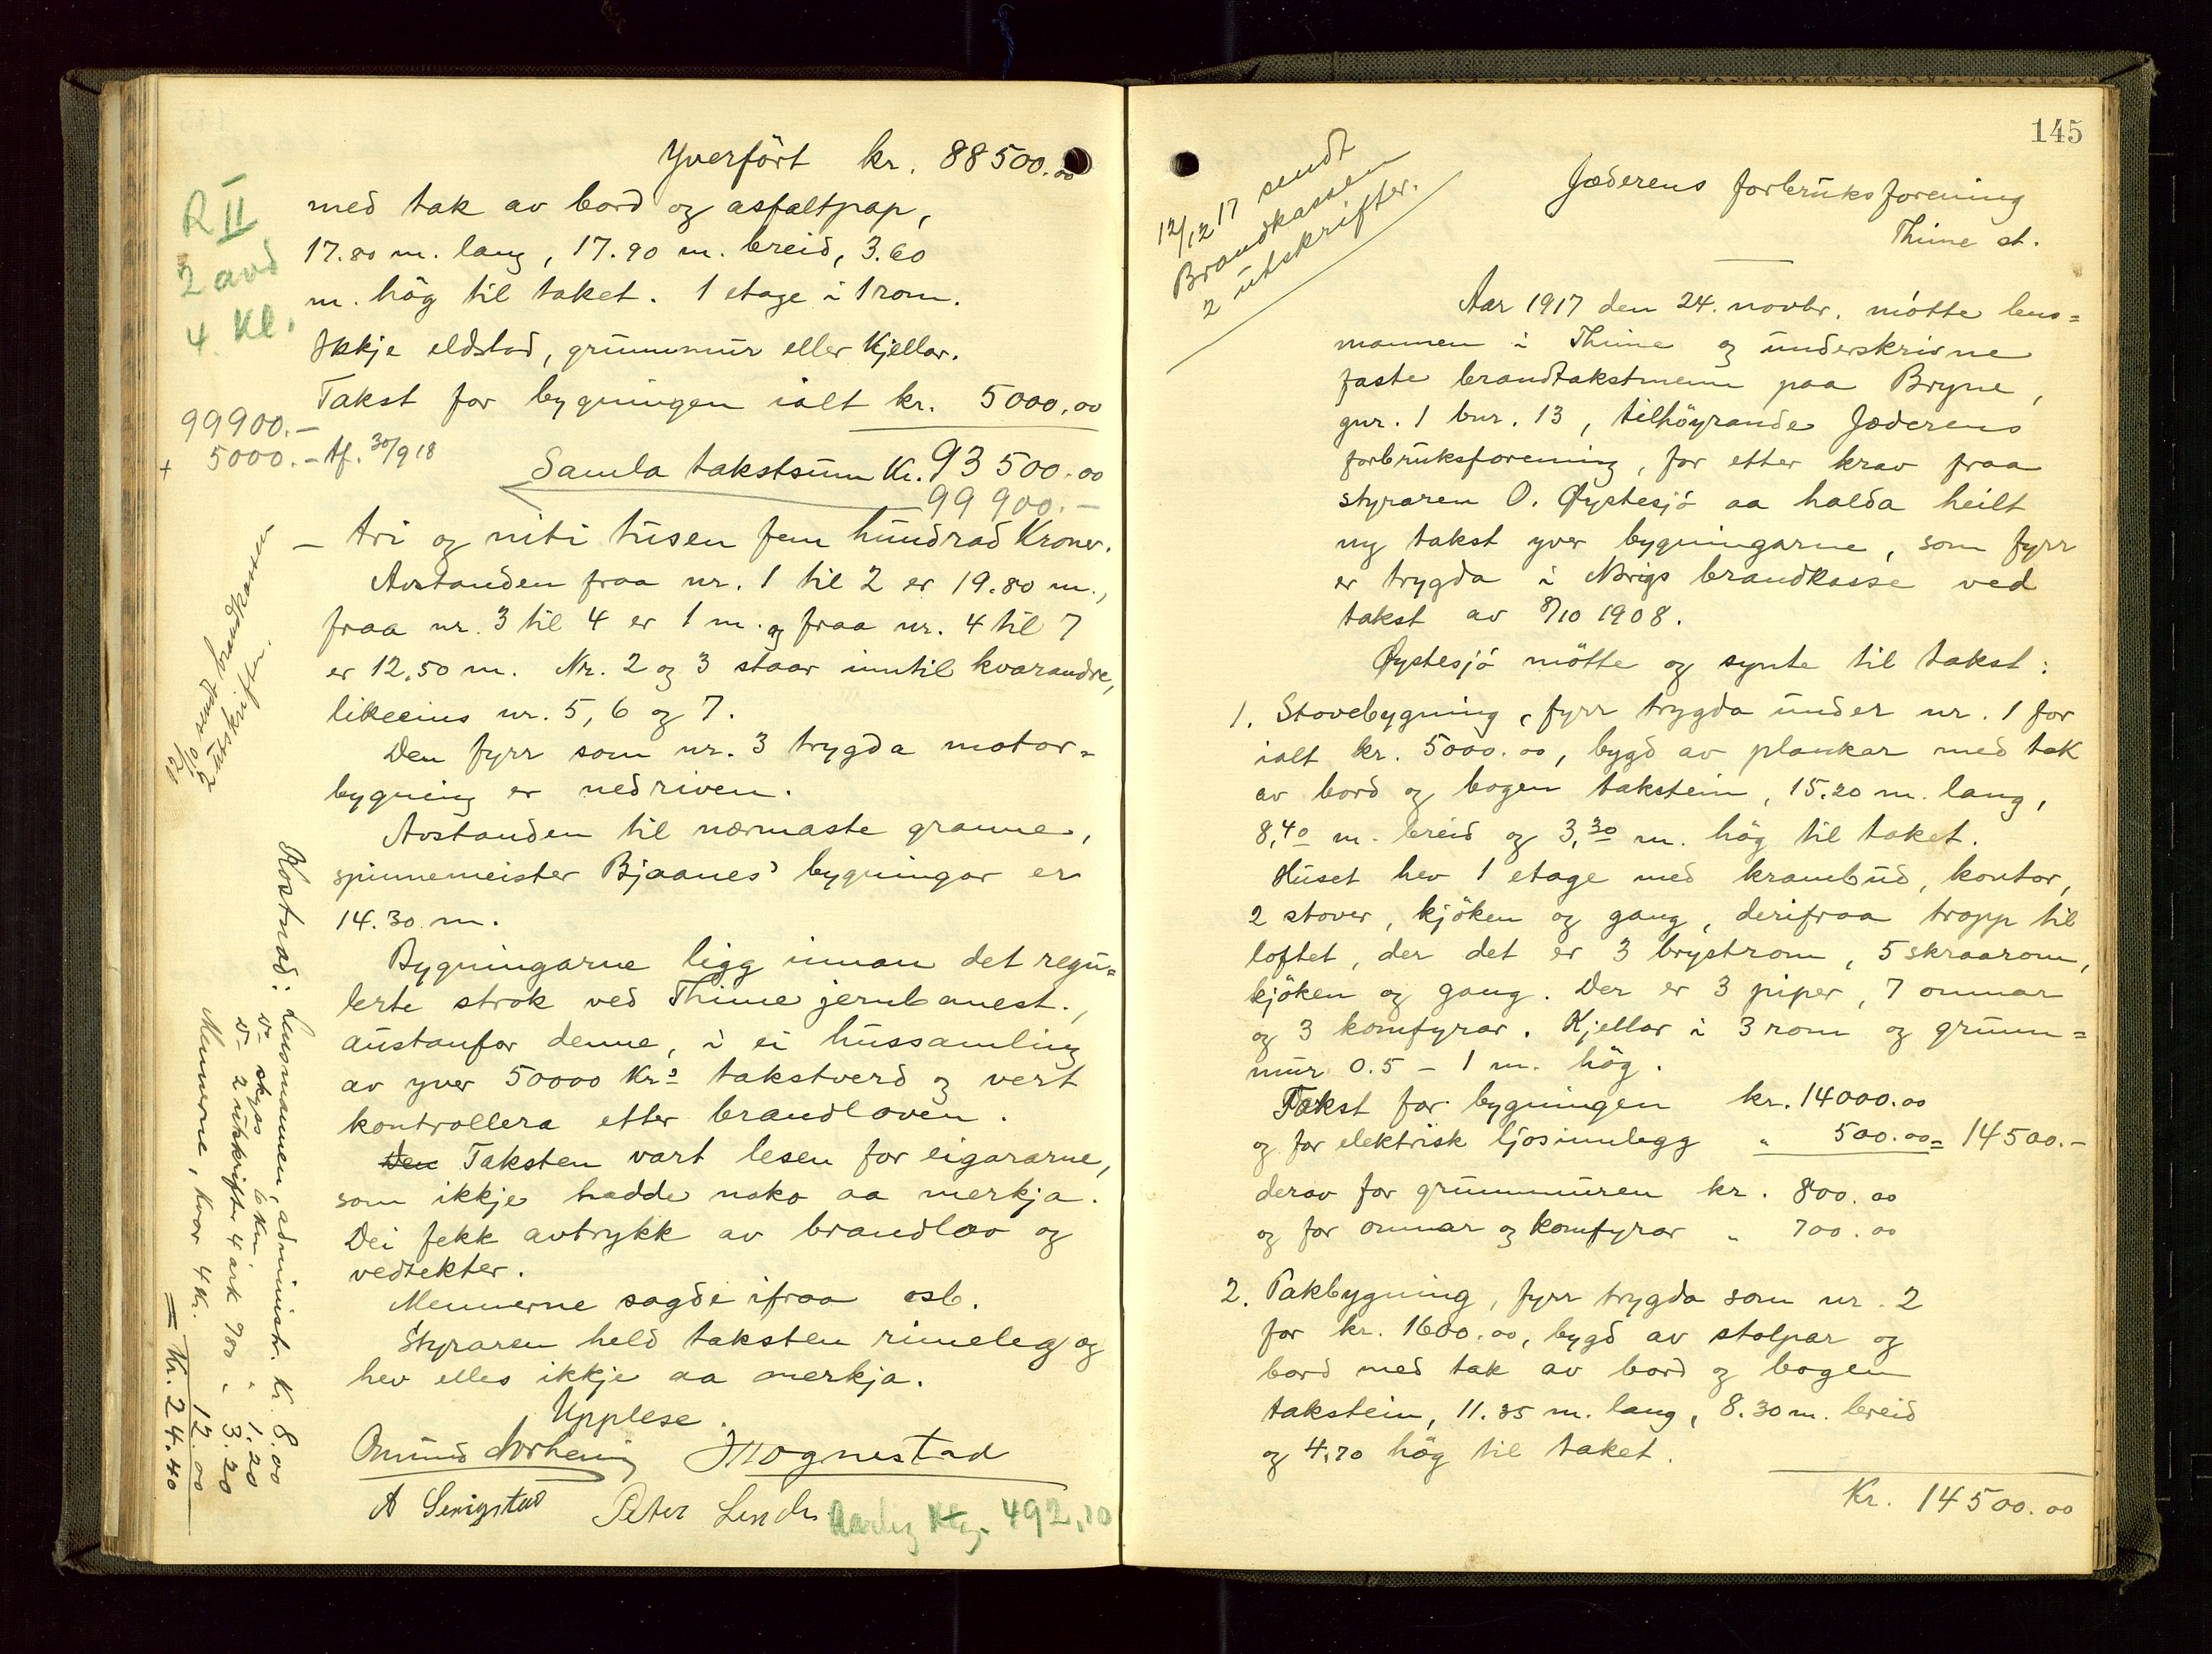 Yverfört kr. 88500.00
med tak av bord og asfaltpap,
17.80 m. lang, 17.90 m. breid, 3.60
m. hög til taket. 1 etage i 1 rom.
Ikkje eldstad, grunnmur eller Kjellar.
Takst for bygningen ialt kr. 5000,00
Samla takstsum Kr. 93500.00
99900.-
- tri og niti tusen fem hundrad Kroner.
Avstanden fraa nr. 1 til 2 er 19.80 m.,
fraa nr. 3 til 4 er 1 m. og fraa nr. 4 til 7
er 12,50 m. Nr. 2 og 3 staar inntil kvarandre,
likeeins nr. 5, 6 og 7.
Den fyrr som nr. 3 trygda motor=
bygning er nedriven.
Avstanden til nærmaste granne,
spinnemeister Bjaanes' bygningar er
14.30 m.
Bygningarne ligg innan det regu=
lerte strok ved Thime jernbanest.,
austanfor denne, i ei hussamling
av yver 50000 Krs takstverd og vert
kontrollera etter brandloven.
Den Taksten vart lesen for eigararne,
som ikkje hadde noko aa merkja.
Dei fekk avtrykk av brandlov og
vedtekter.
Mennerne sagde ifraa osb.
Styraren held taksten rimeleg og
hev elles ikkje aa merkja.
Upplese.
Omund Norheim J Mognestad
A Serigstad Peter Lende
Aarleg 492,10
R II
2 avd
4. Kl.
99900.-
+ 5000.- Af. 30/9 18
12/10 sendt brandkassen
2 utskrifter.
Kostnad: Lensmannen, administr. Kr. 8.00
v- skyss 6 km. " 1.20
v- 2 utskrifter 4 ark " 3.20
Mennerne, kvar 4 Kr. 12.00
= Kr. 24.40
145
12/12 17 sendt
Brandkassen
2 utskrifter.
Jæderens forbruksforening
Thime st.
Aar 1917 den 24. novbr. mötte lens=
mannen i Thime og underskrivne
faste brandtakstmenn paa Bryne,
gnr. 1 bnr. 13, tilhöyrande Jæderens
forbruksforening, for etter krav fraa
styraren O. Øystesjö aa halda heilt
ny takst yver bygningarne, som fyrr
er trygda i Norigs brandkasse ved
takst av 8/10 1908.
Øystesjö mötte og synte til takst:
1. Stovebygning, fyrr trygda under nr. 1 for
ialt kr. 5000.00, bygd av plankar med tak
av bord og bogen takstein, 15.20 m. lang,
8,40 m. breid og 3,30 m. hög til taket.
Huset hev 1 etage med krambud, kontor,
2 stover, kjöken og gang, derifraa tropp til
loftet, der det er 3 brystrom, 5 skraarom,
kjöken og gang. Der er 3 piper, 7 omnar
og 3 komfyrar. Kjellar i 3 rom og grunn=
mur 0.5 - 1 m. hög.
Takst for bygningen kr. 14000.00
og for elektrisk ljosinnlegg " 500.00 = 14500.-
derav for grunnmuren kr. 800.00
og for omnar og komfyrar " 700.00
2. Pakbygning, fyrr trygda som nr. 2
for kr. 1600.00, bygd av stolpar og
bord med tak av bord og bogen
takstein, 11.35 m. lang, 8.30 m. breid
og 4.70 hög til taket.
Kr. 14500.00